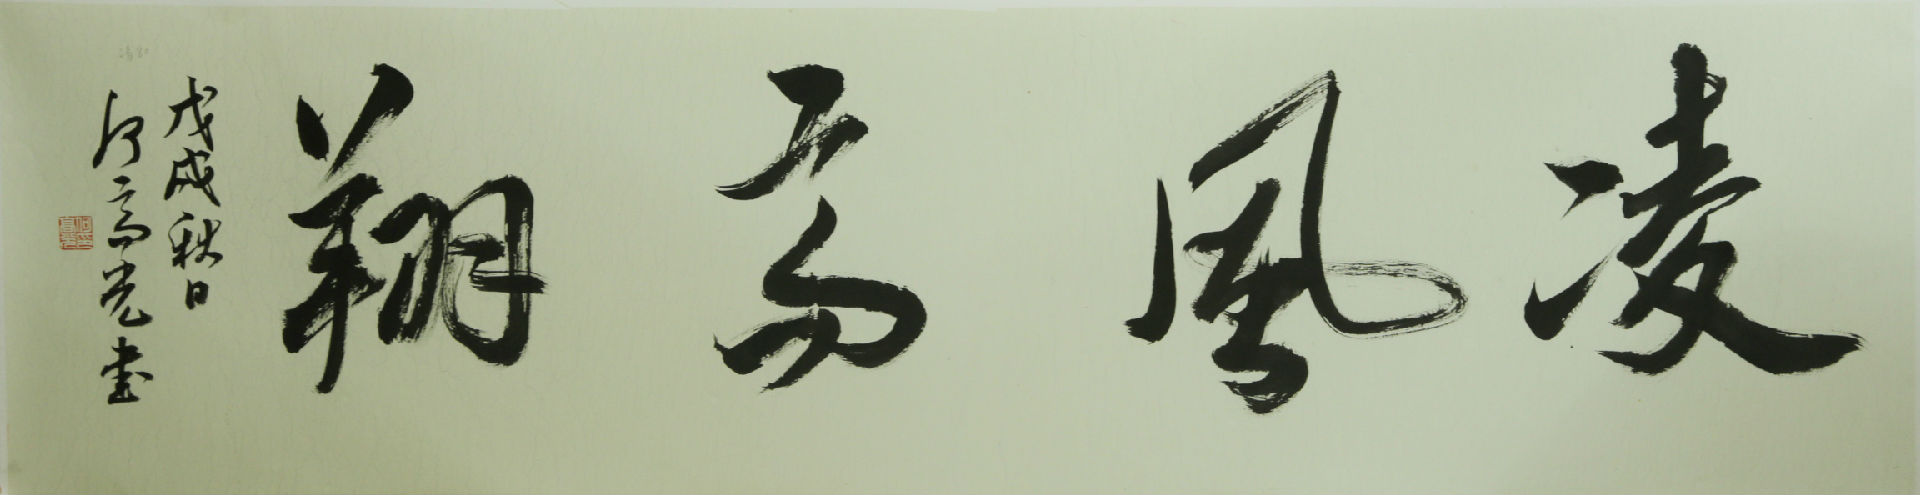 凌風高翔
戊戌秋日
何高光書